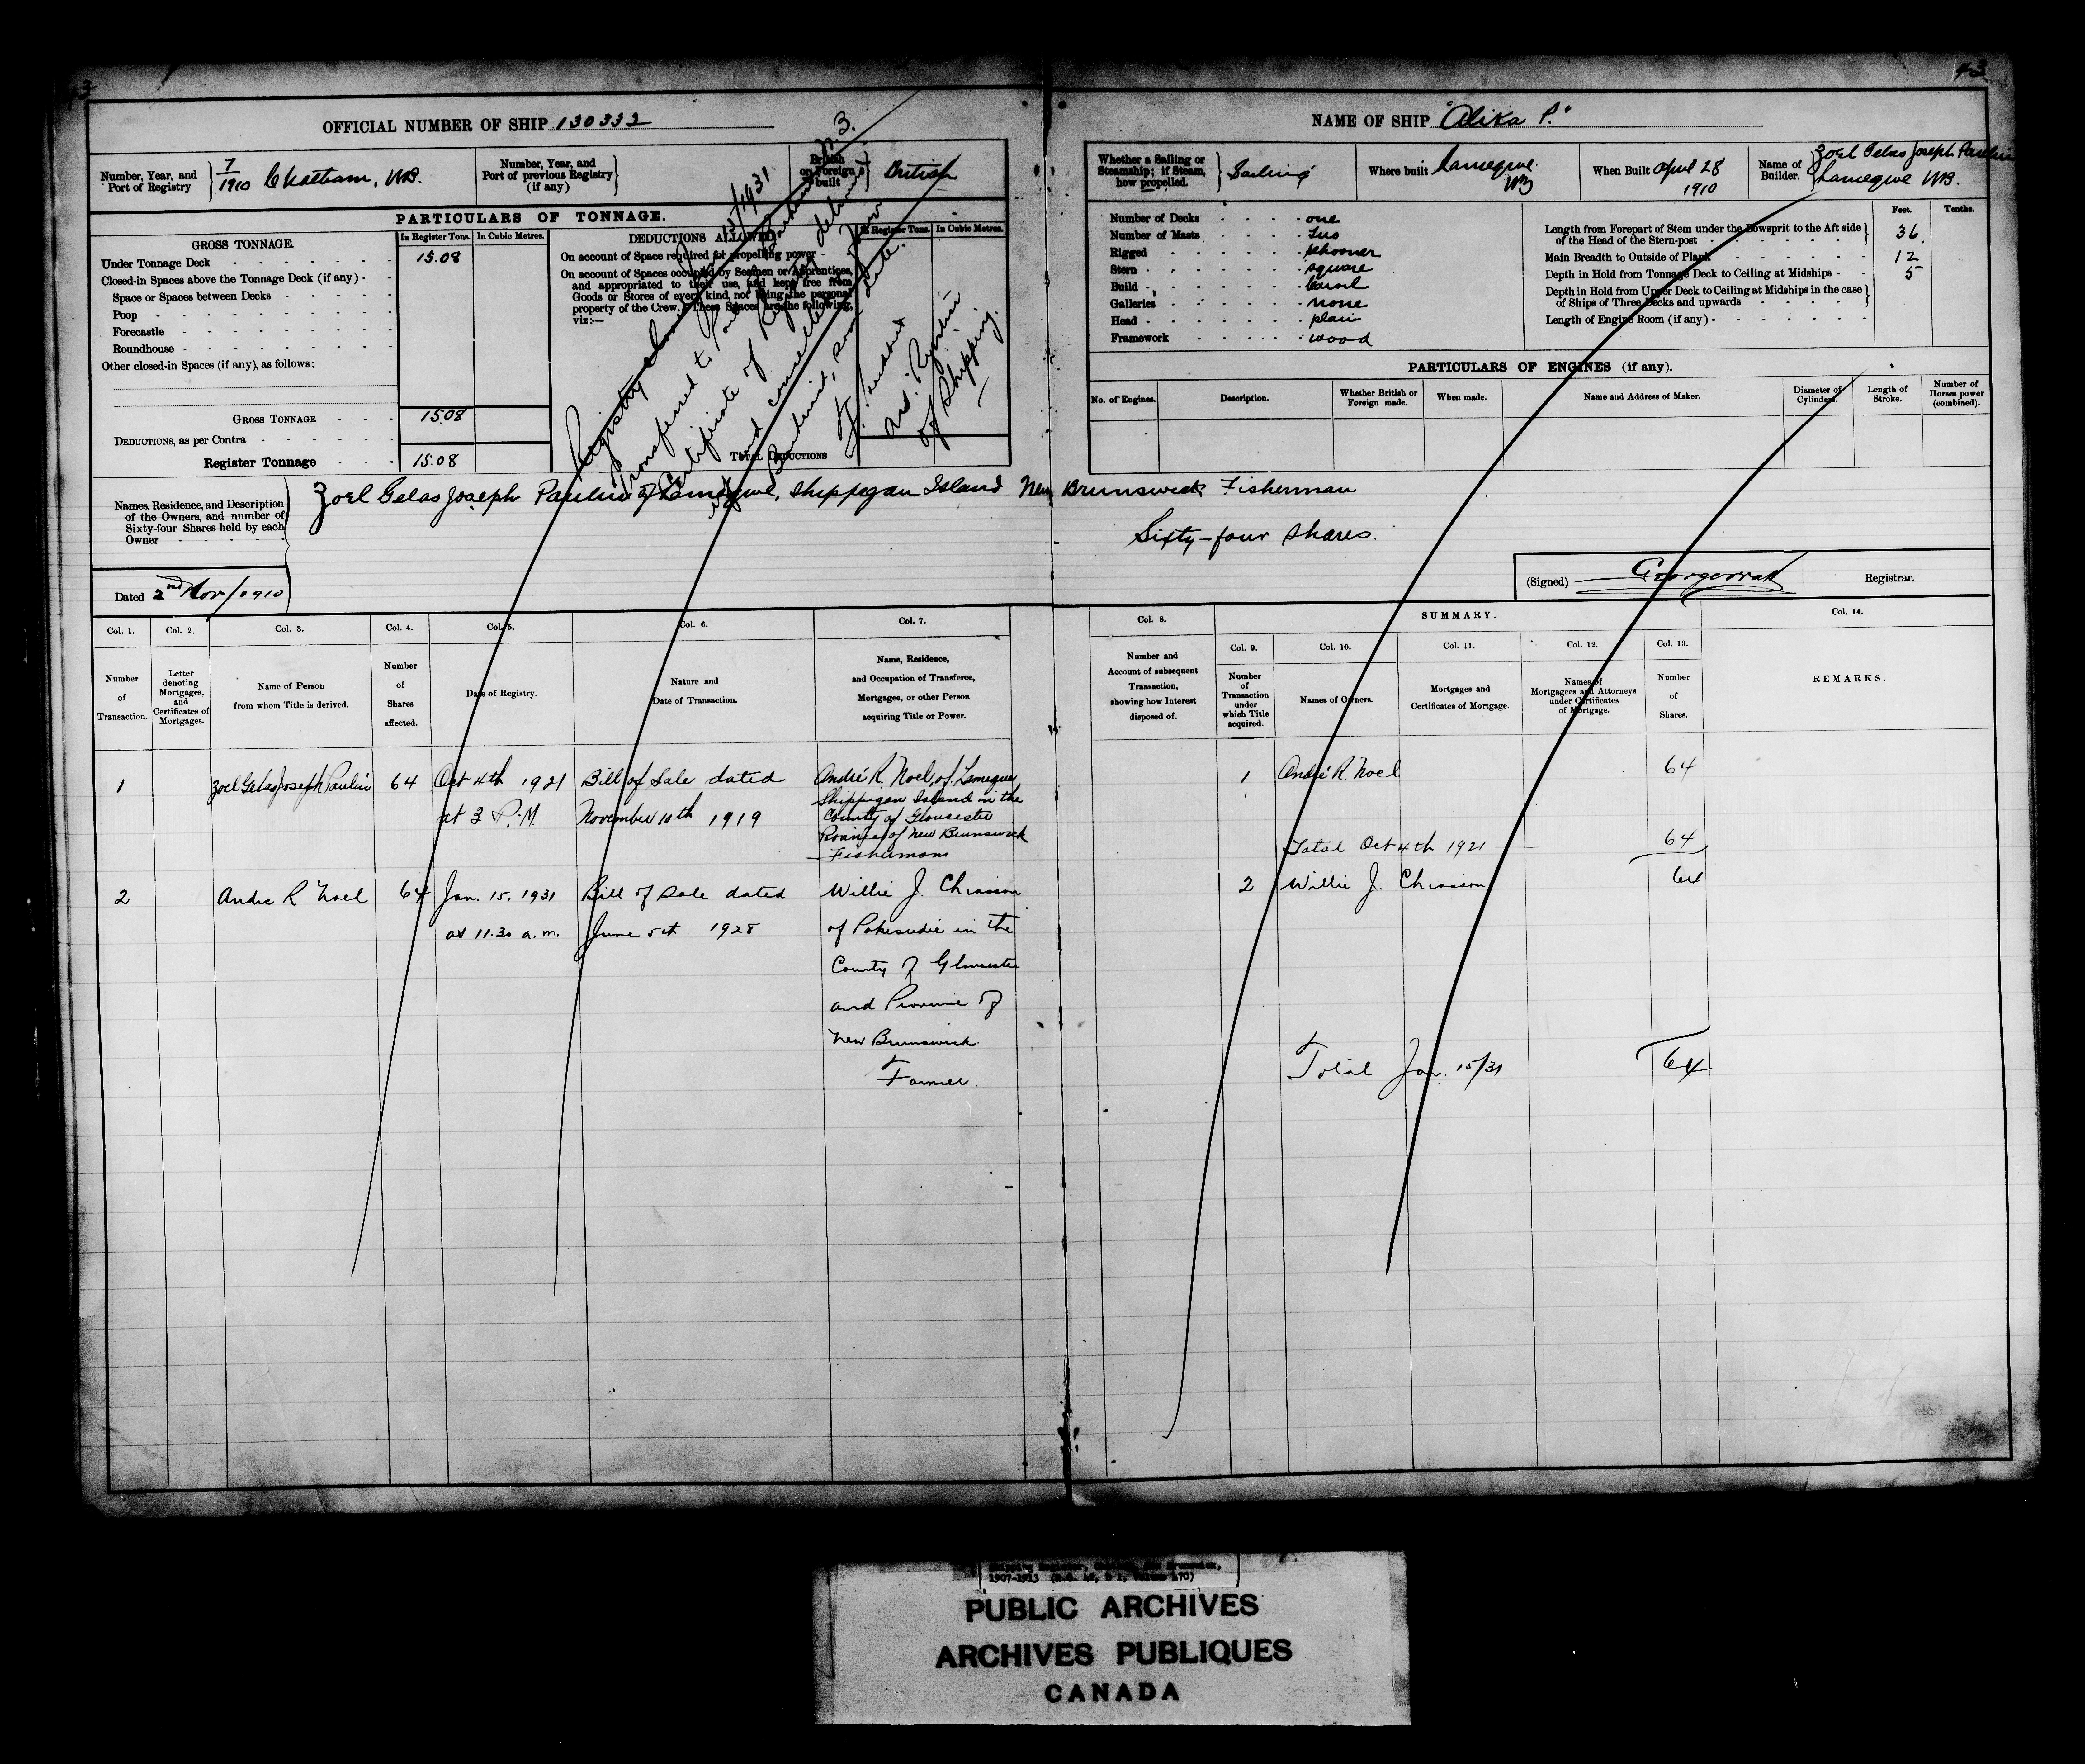 43
OFFICIAL NUMBER OF SHIP 130332
NAME OF SHIP "Alika P."
Number, Year, and Port of Registry 7/1910 Chatham, NB.
Number, Year, and Port of previous Registry (if any)
British or Foreign built British
Whether a Sailing or Steamship; if Steam, how propelled. Sailing
Where built Lameque NB
When Built April 28 1910
Name of Builder. Zoel Gelas Joseph Paulin Lameque NB.
PARTICULARS OF TONNAGE.
GROSS TONNAGE.
In Register Tons. In Cubic Metres.
Under Tonnage Deck 15.08
Closed-in Spaces above the Tonnage Deck (if any)
Space or Spaces between Decks
Poop
Forecastle
Roundhouse
Other closed-in Spaces (if any), as follows:
GROSS TONNAGE 15.08
DEDUCTIONS, as per Contra
Register Tonnage 15.08
DEDUCTIONS ALLOWED
In Register Tons. In Cubic Metres.
On account of Space required for propelling power
On account of Spaces occupied by Seamen or Apprentices,
and appropriated to their use, and kept free from
Goods or Stores of every kind, not being the personal
property of the Crew. These Spaces are the following,
viz:—
TOTAL DEDUCTIONS
Registry closed 15/1931
Transferred to
Certificate of Registry delivered
and cancelled
of Shipping.
Number of Decks one
Number of Masts two
Rigged schooner
Stern square
Build carvel
Galleries none
Head plain
Framework wood
Feet. Tenths.
Length from Forepart of Stem under the Bowsprit to the Aft side of the Head of the Stern-post 36.
Main Breadth to Outside of Plank 12
Depth in Hold from Tonnage Deck to Ceiling at Midships 5
Depth in Hold from Upper Deck to Ceiling at Midships in the case of Ships of Three Decks and upwards
Length of Engine Room (if any)
PARTICULARS OF ENGINES (if any).
No. of Engines. Description. Whether British or Foreign made. When made. Name and Address of Maker. Diameter of Cylinders. Length of Stroke. Number of Horses power (combined).
Names, Residence, and Description
of the Owners, and number of
Sixty-four Shares held by each
Owner
Zoel Gelas Joseph Paulin of Lameque, Shippegan Island New Brunswick Fisherman
Sixty-four shares.
Dated 2nd Nov/1910
(Signed) Registrar.
Col. 1. Col. 2. Col. 3. Col. 4. Col. 5. Col. 6. Col. 7. Col. 8. SUMMARY. Col. 14.
Col. 9. Col. 10. Col. 11. Col. 12. Col. 13.
Number of Transaction.
Letter denoting Mortgages, and Certificates of Mortgages.
Name of Person from whom Title is derived.
Number of Shares affected.
Date of Registry.
Nature and Date of Transaction.
Name, Residence, and Occupation of Transferee, Mortgagee, or other Person acquiring Title or Power.
Number and Account of subsequent Transaction, showing how Interest disposed of.
Number of Transaction under which Title acquired.
Names of Owners.
Mortgages and Certificates of Mortgage.
Names of Mortgagees and Attorneys under Certificates of Mortgage.
Number of Shares.
REMARKS.
1 Zoel Gelas Joseph Paulin 64 Oct 4th 1921 Bill of Sale dated André R. Noel, of Lameque 1 André R. Noel 64
at 3 P.M. November 10th 1919 Shippegan Island in the
County of Gloucester
Province of New Brunswick
Fisherman
Total Oct 4th 1921 64
2 Andre R Noel 64 Jan. 15, 1931 Bill of Sale dated Willie J. Chiasson 2 Willie J. Chiasson 64
at 11.30 a.m. June 5th 1928 of Pokesudie in the
County of Gloucester
and Province of
New Brunswick
Farmer
Total Jan. 15/31 64
Shipping Register, Chatham, New Brunswick,
1907-1913
PUBLIC ARCHIVES
ARCHIVES PUBLIQUES
CANADA